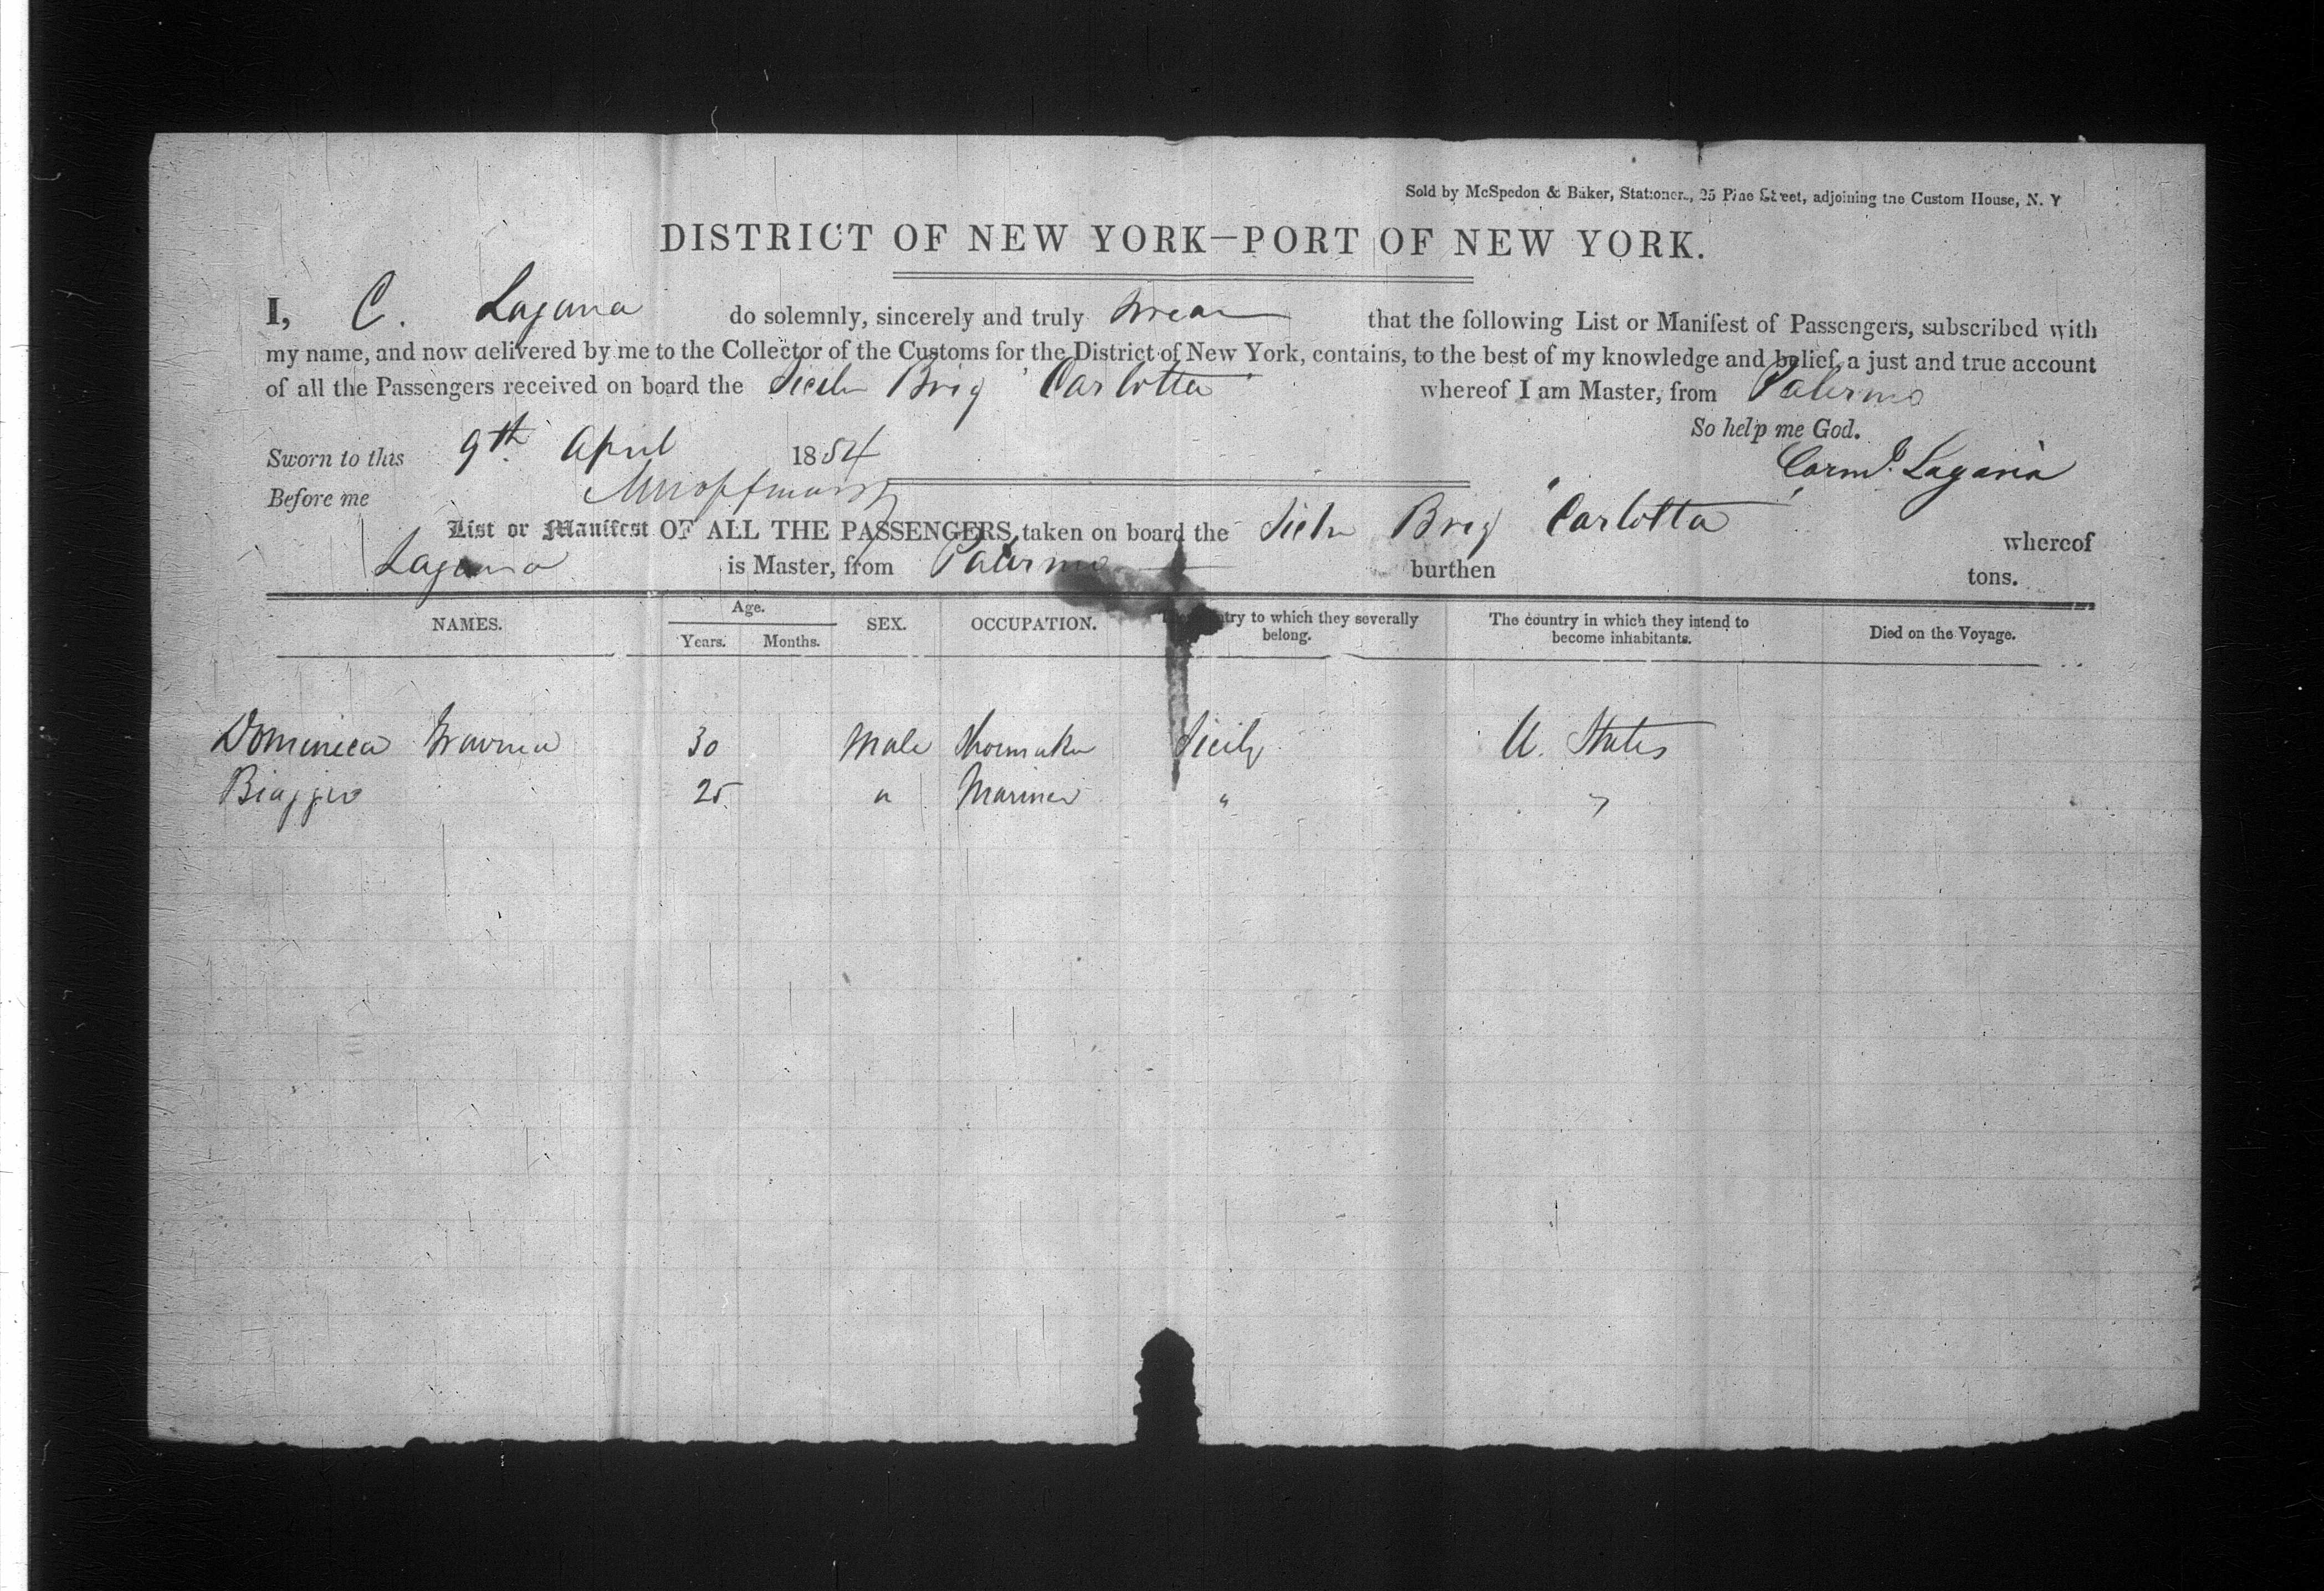 Sold by McSpedon & Baker, Stationers, 25 Pine Street, adjoining the Custom House, N. Y
DISTRICT OF NEW YORK—PORT OF NEW YORK.
I, C. Lagana do solemnly, sincerely and truly swear that the following List or Manifest of Passengers, subscribed with
my name, and now delivered by me to the Collector of the Customs for the District of New York, contains, to the best of my knowledge and belief, a just and true account
of all the Passengers received on board the Siciln Brig "Carlotta" whereof I am Master, from Palermo
So help me God.
Sworn to this 9th April 1854
Carmo. Lagana
Before me
List or Manifest OF ALL THE PASSENGERS taken on board the Siciln Brig "Carlotta" whereof
Lagana is Master, from Palermo burthen tons.
NAMES. Age. Years. Months. SEX. OCCUPATION. The country to which they severally belong. The country in which they intend to become inhabitants. Died on the Voyage.
Dominica 30 Male Shoemaker Sicily U. States
Biaggio 25 " Mariner " "